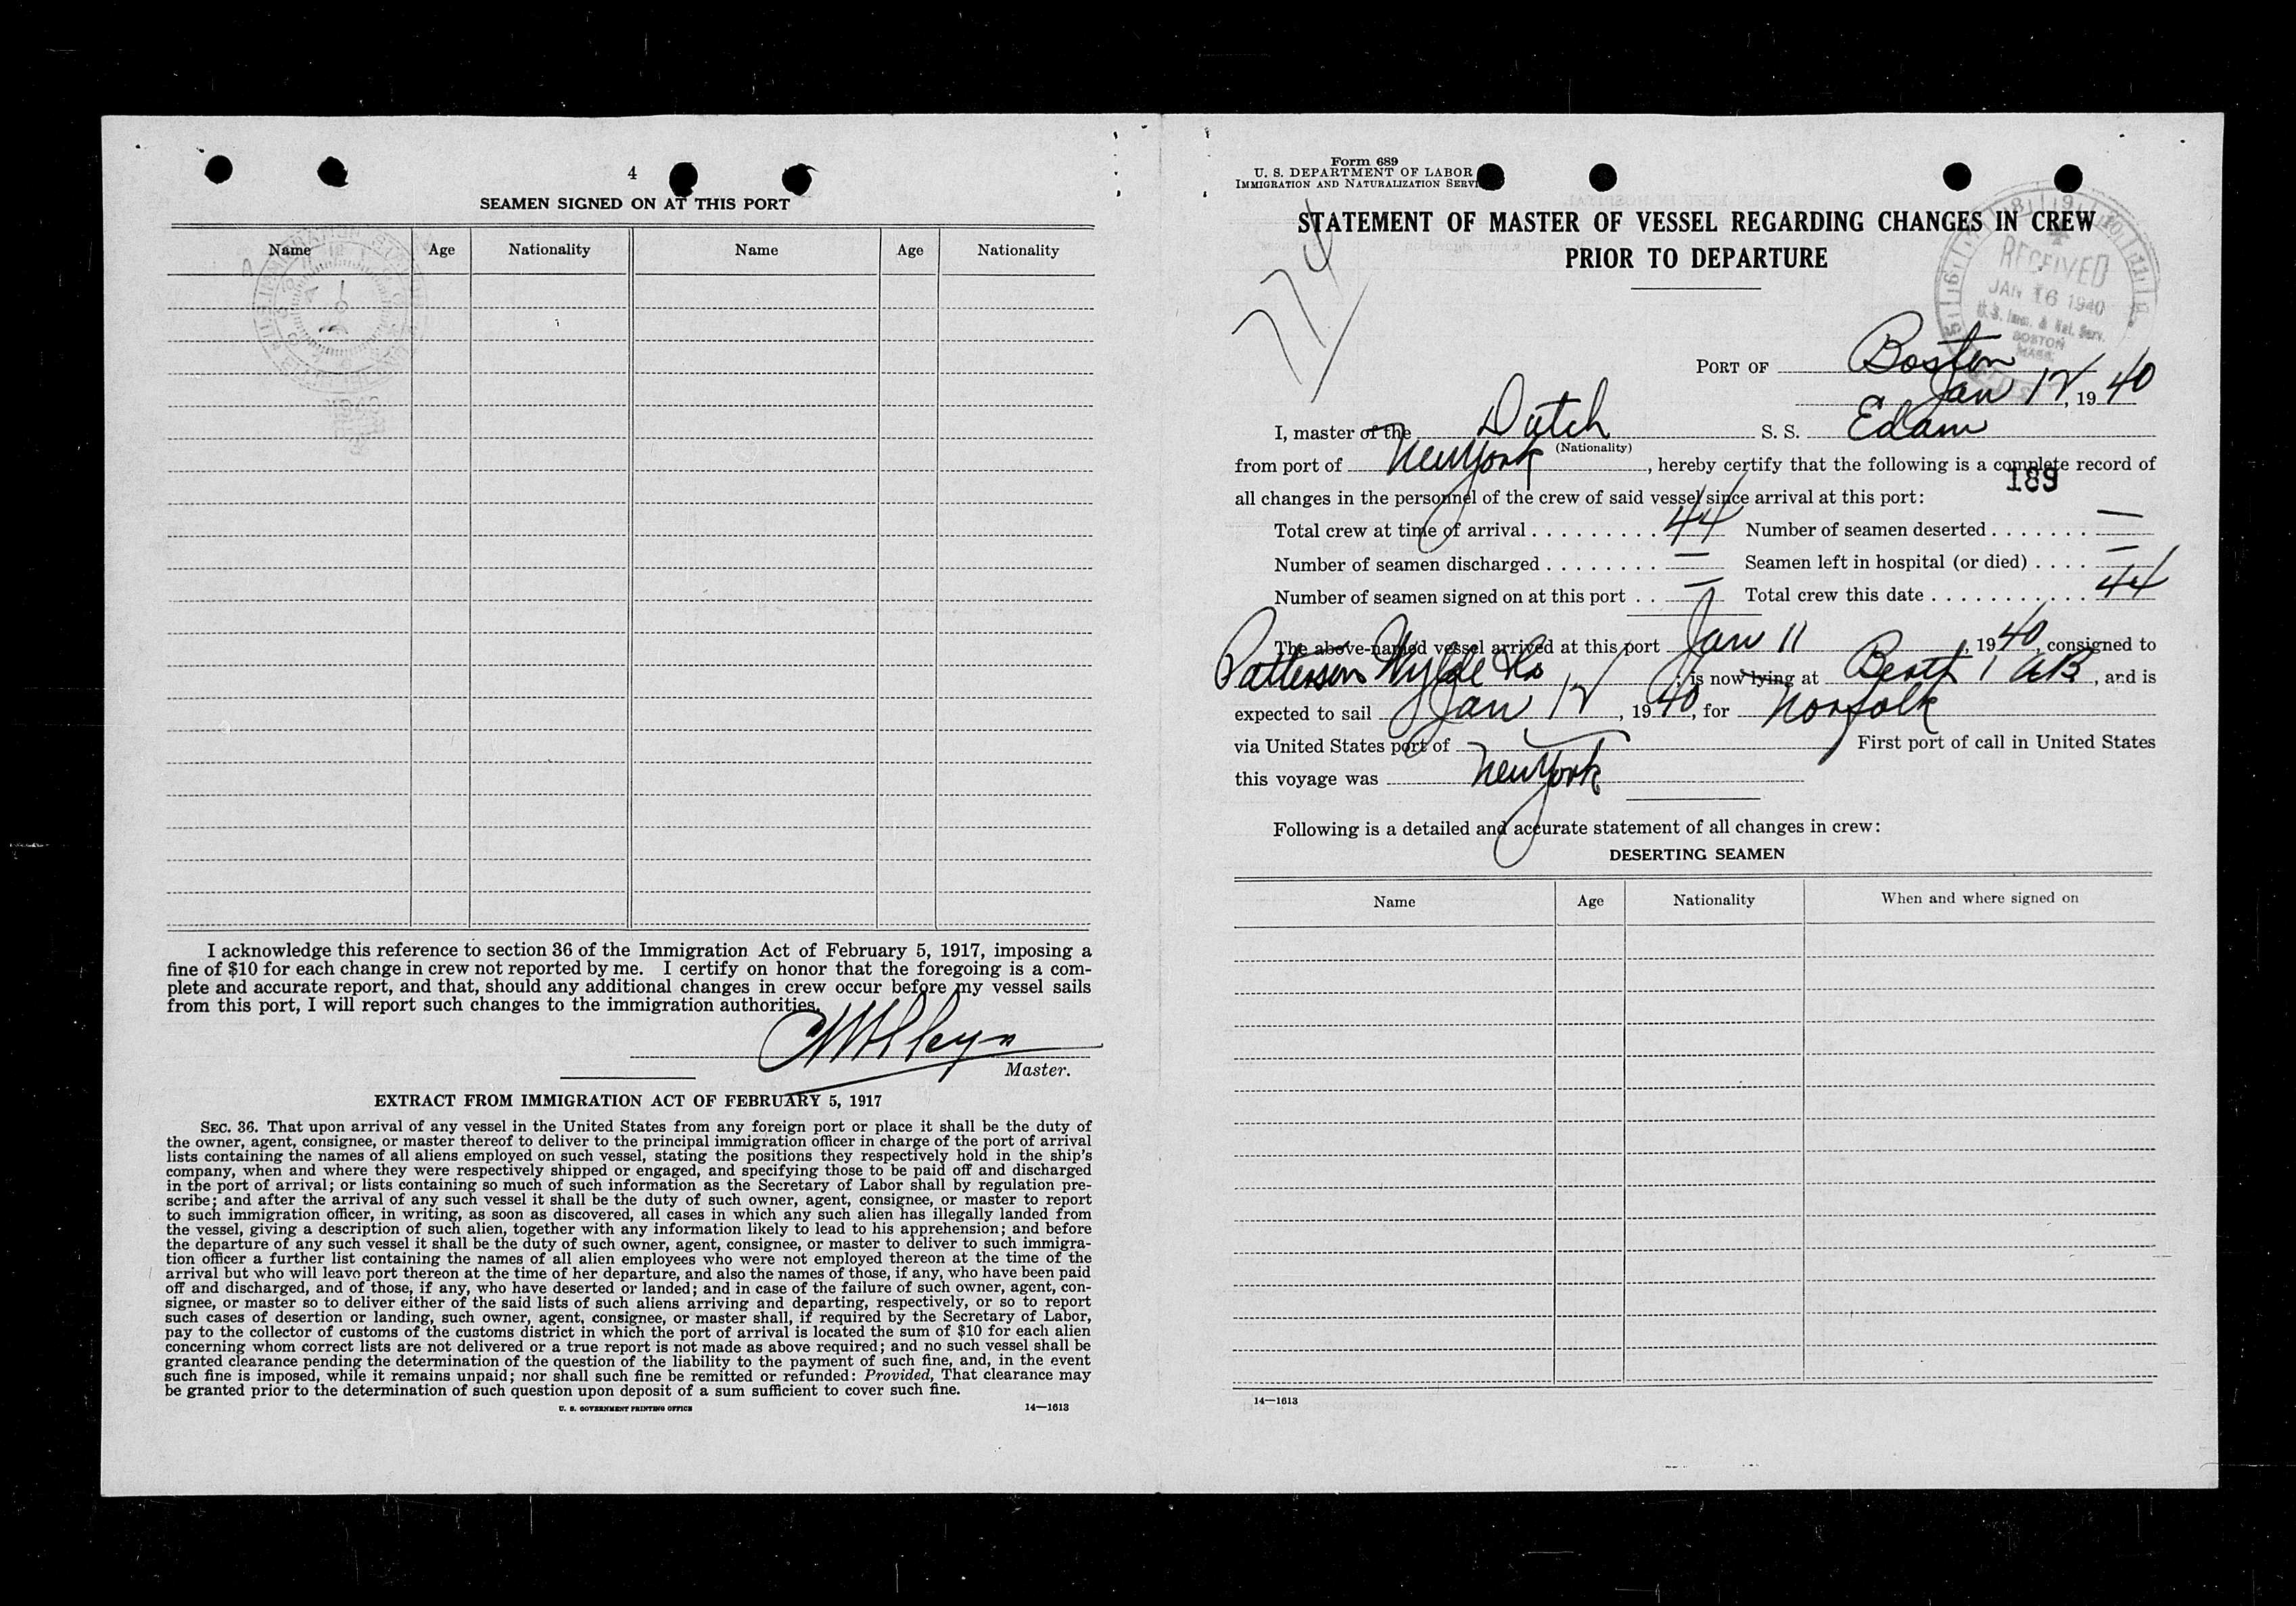 4
SEAMEN SIGNED ON AT THIS PORT
Name Age Nationality Name Age Nationality
I acknowledge this reference to section 36 of the Immigration Act of February 5, 1917, imposing a
fine of $10 for each change in crew not reported by me. I certify on honor that the foregoing is a com-
plete and accurate report, and that, should any additional changes in crew occur before my vessel sails
from this port, I will report such changes to the immigration authorities.
Master.
EXTRACT FROM IMMIGRATION ACT OF FEBRUARY 5, 1917
SEC. 36. That upon arrival of any vessel in the United States from any foreign port or place it shall be the duty of
the owner, agent, consignee, or master thereof to deliver to the principal immigration officer in charge of the port of arrival
lists containing the names of all aliens employed on such vessel, stating the positions they respectively hold in the ship's
company, when and where they were respectively shipped or engaged, and specifying those to be paid off and discharged
in the port of arrival; or lists containing so much of such information as the Secretary of Labor shall by regulation pre-
scribe; and after the arrival of any such vessel it shall be the duty of such owner, agent, consignee, or master to report
to such immigration officer, in writing, as soon as discovered, all cases in which any such alien has illegally landed from
the vessel, giving a description of such alien, together with any information likely to lead to his apprehension; and before
the departure of any such vessel it shall be the duty of such owner, agent, consignee, or master to deliver to such immigra-
tion officer a further list containing the names of all alien employees who were not employed thereon at the time of the
arrival but who will leave port thereon at the time of her departure, and also the names of those, if any, who have been paid
off and discharged, and of those, if any, who have deserted or landed; and in case of the failure of such owner, agent, con-
signee, or master so to deliver either of the said lists of such aliens arriving and departing, respectively, or so to report
such cases of desertion or landing, such owner, agent, consignee, or master shall, if required by the Secretary of Labor,
pay to the collector of customs of the customs district in which the port of arrival is located the sum of $10 for each alien
concerning whom correct lists are not delivered or a true report is not made as above required; and no such vessel shall be
granted clearance pending the determination of the question of the liability to the payment of such fine, and, in the event
such fine is imposed, while it remains unpaid; nor shall such fine be remitted or refunded: Provided, That clearance may
be granted prior to the determination of such question upon deposit of a sum sufficient to cover such fine.
U. S. GOVERNMENT PRINTING OFFICE 14—1613
Form 689
U. S. DEPARTMENT OF LABOR
IMMIGRATION AND NATURALIZATION SERVI
STATEMENT OF MASTER OF VESSEL REGARDING CHANGES IN CREW
PRIOR TO DEPARTURE
RECEIVED
JAN 16 1940
U.S. Imm. & Nat. Serv.
BOSTON
MASS.
PORT OF Boston
Jan 12, 1940
I, master of the Dutch S. S. Edam
(Nationality)
from port of New York, hereby certify that the following is a complete record of
189
all changes in the personnel of the crew of said vessel since arrival at this port:
Total crew at time of arrival . . . . . . . . . 44 Number of seamen deserted . . . . . . . —
Number of seamen discharged . . . . . . . . — Seamen left in hospital (or died) . . . . —
Number of seamen signed on at this port . . — Total crew this date . . . . . . . . . . . . 44
The above-named vessel arrived at this port Jan 11, 1940, consigned to
Patterson Wylde Co; is now lying at Berth 1 AB, and is
expected to sail Jan 12, 1940, for Norfolk
via United States port of First port of call in United States
this voyage was New York
Following is a detailed and accurate statement of all changes in crew:
DESERTING SEAMEN
Name Age Nationality When and where signed on
14—1613